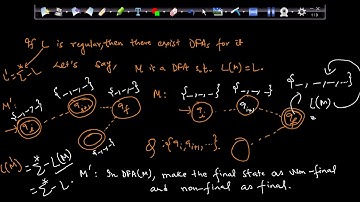 If L is regular, then there exist DFAs for it
L' = Σ* - L
Let's Say, M is a DFA s.t. L(M) = L.
M': {-,-,-} {-,-,-} {-,-,-}
M: {-,-,-} {-,-,-} {-,-,-,...}
L(M) =
qi qf qi
{-,-,-}
Q: {qi, qin, ...}
L(M') = Σ* - L(M)
= Σ* - L
M': In DFA(M), make the final state as non-final
and non-final as final.